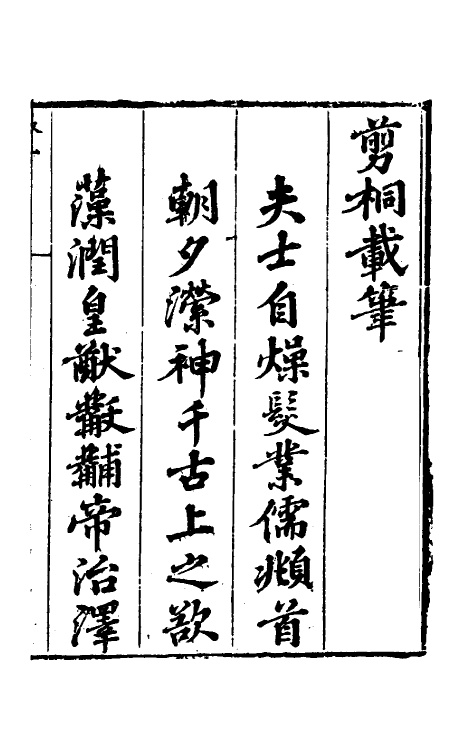 剪桐載筆
夫士自燥髮業儒頫首
朝夕濴神千古上之欲
藻潤皇猷黻黼帝治澤